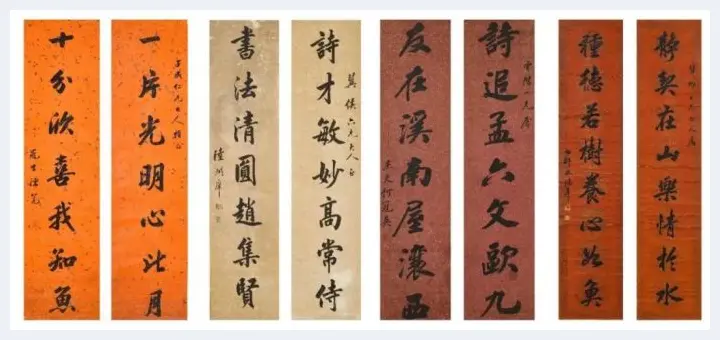 靜契在山樂情於水
種德若樹養心如魚
詩追孟六文歐九
友在溪南屋瀼西
詩才敏妙高常侍
六兄大人正
書法清圓趙集賢
陸潤庠
一片光明心比月
仁兄大人
十分欣喜我知魚